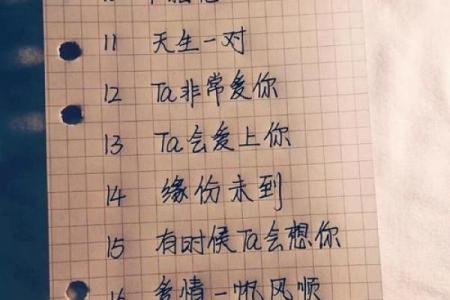 11 天生一对
12 Ta非常爱你
13 Ta会爱上你
14 缘份未到
15 有时候Ta会想你
16 爱情一帆风顺